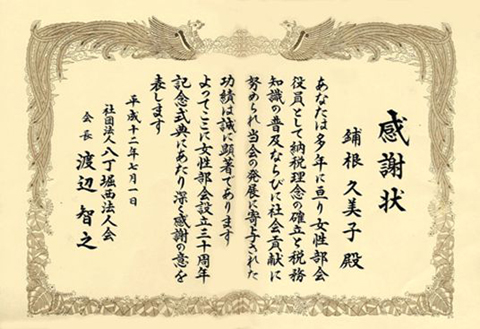 感謝状
鋪根 久美子 殿
あなたは多年に亘り女性部会
役員として納税理念の確立と税務
知識の普及ならびに社会貢献に
努められ当会の発展に寄与された
功績は誠に顕著であります
よってここに女性部会設立三十周年
記念式典にあたり深く感謝の意を
表します
平成十二年七月一日
社団法人 八丁堀西法人会
会長 渡辺 智之